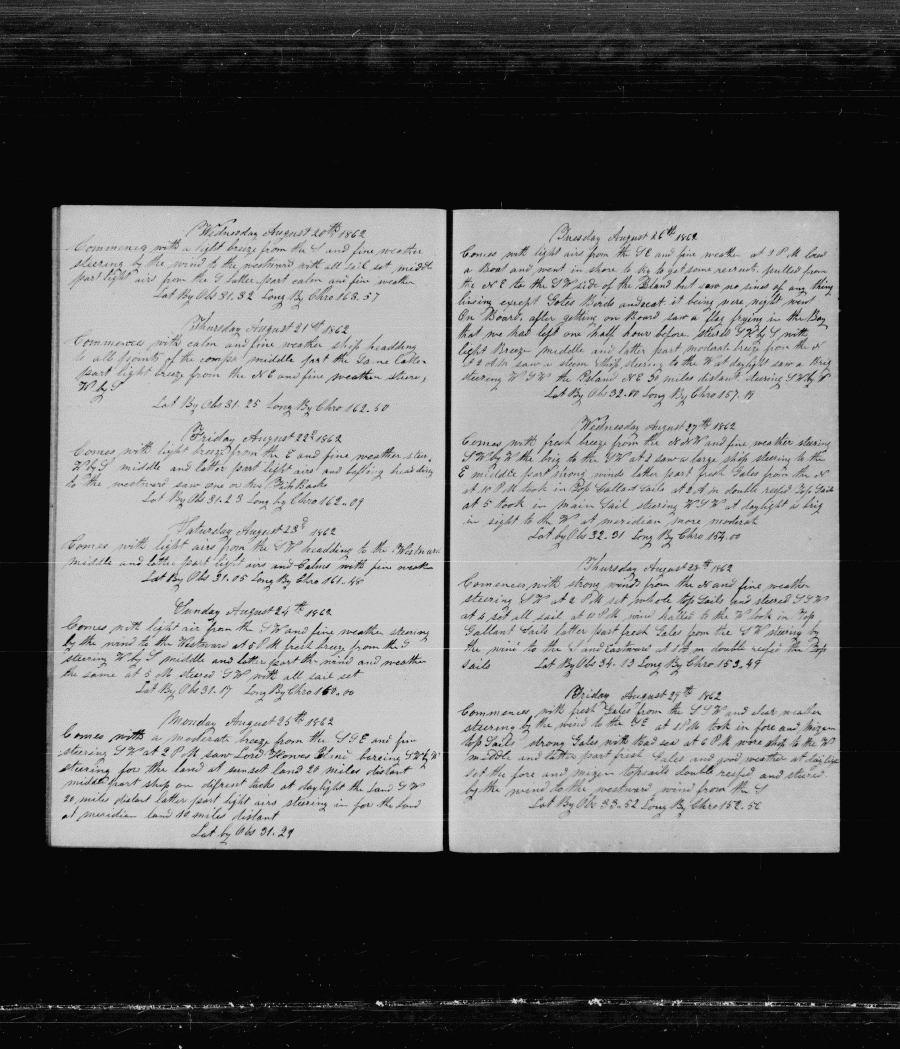 Wednesday August 20th 1862
Commences with a light breeze from the S and fine weather
steering by the wind to the westward with all sail set middle
part light airs from the S latter part calm and fine weather
Lat By Obs 31.32 Long By Chro 163.57
Thursday August 21st 1862
Commences with calm and fine weather ship heading
to all points of the compass middle part the same latter
part light breeze from the NE and fine weather steers,
W by S
Lat By Obs 31.25 Long By Chro 162.50
Friday August 22d 1862
Comes with light breeze from the E and fine weather steer,
W by S middle and latter part light airs and heading
to the westward saw one or two Fin Backs
Lat By Obs 31.23 Long by Chro 162.09
Saturday August 23d 1862
Comes with light airs from the SW heading to the Westward
middle and latter part light airs and Calms with fine weath
Lat By Obs 31.05 Long By Chro 161.48
Sunday August 24th 1862
Comes with light air from the SW and fine weather steering
by the wind to the Westward at 5 PM fresh breeze from the S
steering W by S middle and latter part the wind and weather
the same at 5 AM steered SW with all sail set
Lat By Obs 31.17 Long By Chro 160.00
Monday August 25th 1862
Comes with a moderate breeze from the SSE and fine
steering SW at 2 PM saw Lord Howes Iland bereing SW by W
steering for the land at sunset land 20 miles distant
middle part ship on defrent tacks at daylight the land SW
20 miles distant latter part light airs steering in for the land
at meridian land 10 miles distant
Lat by Obs 31.29
Tuesday August 26th 1862
Comes with light airs from the SE and fine weather at 1 PM lowd
a Boat and went in shore to try to get some recruits pulled from
the NE to the SW side of the Island but saw no sines of any thing
liveing except Gotes Birds and cat it being nere night went
On Board, after getting on Board saw a flag frying in the Bay
that we had left one half hour before. steerd SW by S with
light Breeze middle and latter part moderate breeze from the N
at 2 AM saw a steem ship steering to the W at daylight saw a Brig
steering WSW the Island NE 30 miles distant steering SW by W
Lat By Obs 32.00 Long By Chro 157.19
Wednesday August 27th 1862
Comes with fresh breeze from the NNW and fine weather steering
SW by W the brig to the SW at 2 saw a large ship steering to the
E middle part strong winds latter part fresh Gales from the N
at 10 PM took in Top Gallant Sails at 2 AM double reefed Top Sails
at 5 took in main Sail steering WSW at daylight a brig
in sight to the W at meridian more moderate
Lat by Obs 32.31 Long By Chro 154.00
Thursday August 28th 1862
Comences with strong winds from the N and fine weather
steering SW at 2 PM set whole top Sails and steered SSW
at 4 set all sail at 11 PM wind halled to the W took in Top
Gallant Sails latter part fresh Gales from the SW steering by
the wind to the S and Eastward at AM double reefed the Top
Sails Lat By Obs 34.13 Long By Chro 153.49
Friday August 29th 1862
Commences with fresh Gales from the SSW and clear weather
steering by the wind to the SE at 1 PM took in fore and Mizen
top Sails strong Gales with Bad sea at 6 PM wore ship to the W
middle and latter part fresh Gales and good weather at daylight
set the fore and mizen topsails double reefed and steered
by the wind to the westward wind from the S
Lat By Obs 33.52 Long By Chro 152.56